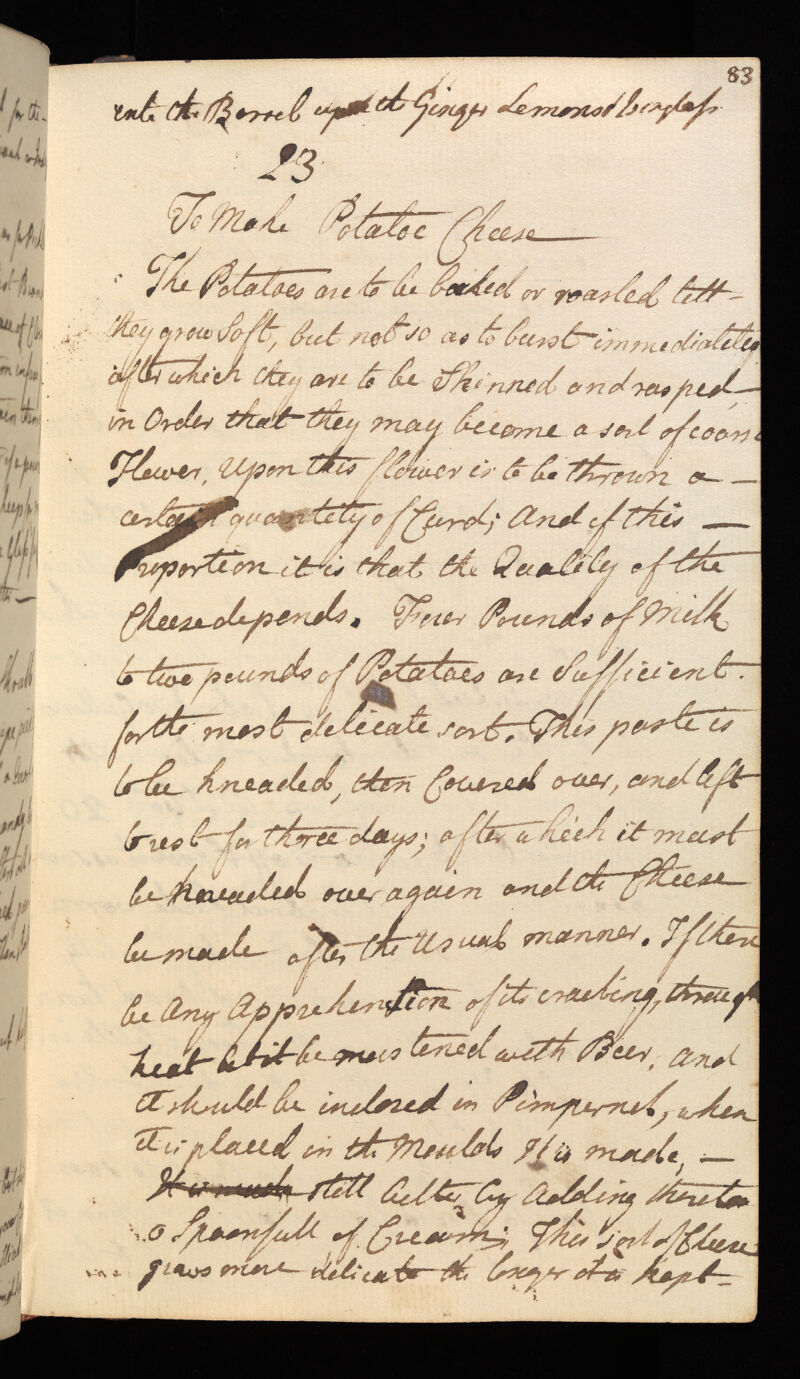 83
into the Barrel upon the Ginger Lemons & Isinglass
23
To Make Potatoe Cheese
The Potatoes are to be boiled or roasted till
they grow Soft, but not so as to burst immediately
after which they are to be Skinned and rasped
in Order that they may become a sort of coarse
Flower, Upon this flower is to be thrown a
certain quantety of Curd; And if this
Proportion it is that the Quality of the
Cheese depends. Four Pounds of Milk
to two pounds of Potatoes are Sufficient.
for the most delicate sort. This paste is
to be kneaded, then Covered over, and left
to rest for three days; after which it must
be kneaded over again and the Cheese
be made after the Usual manner. If there
be Any Apprehension of its cracking, through
heat let it be moistened with Beer, and
it should be inclosed in Pimpernel, when
it is placed in the Moulds It is made,
It is made still better by Adding thereto
a Spoonfull of Cream; This sort of Cheese
grows more delicate the longer it is kept